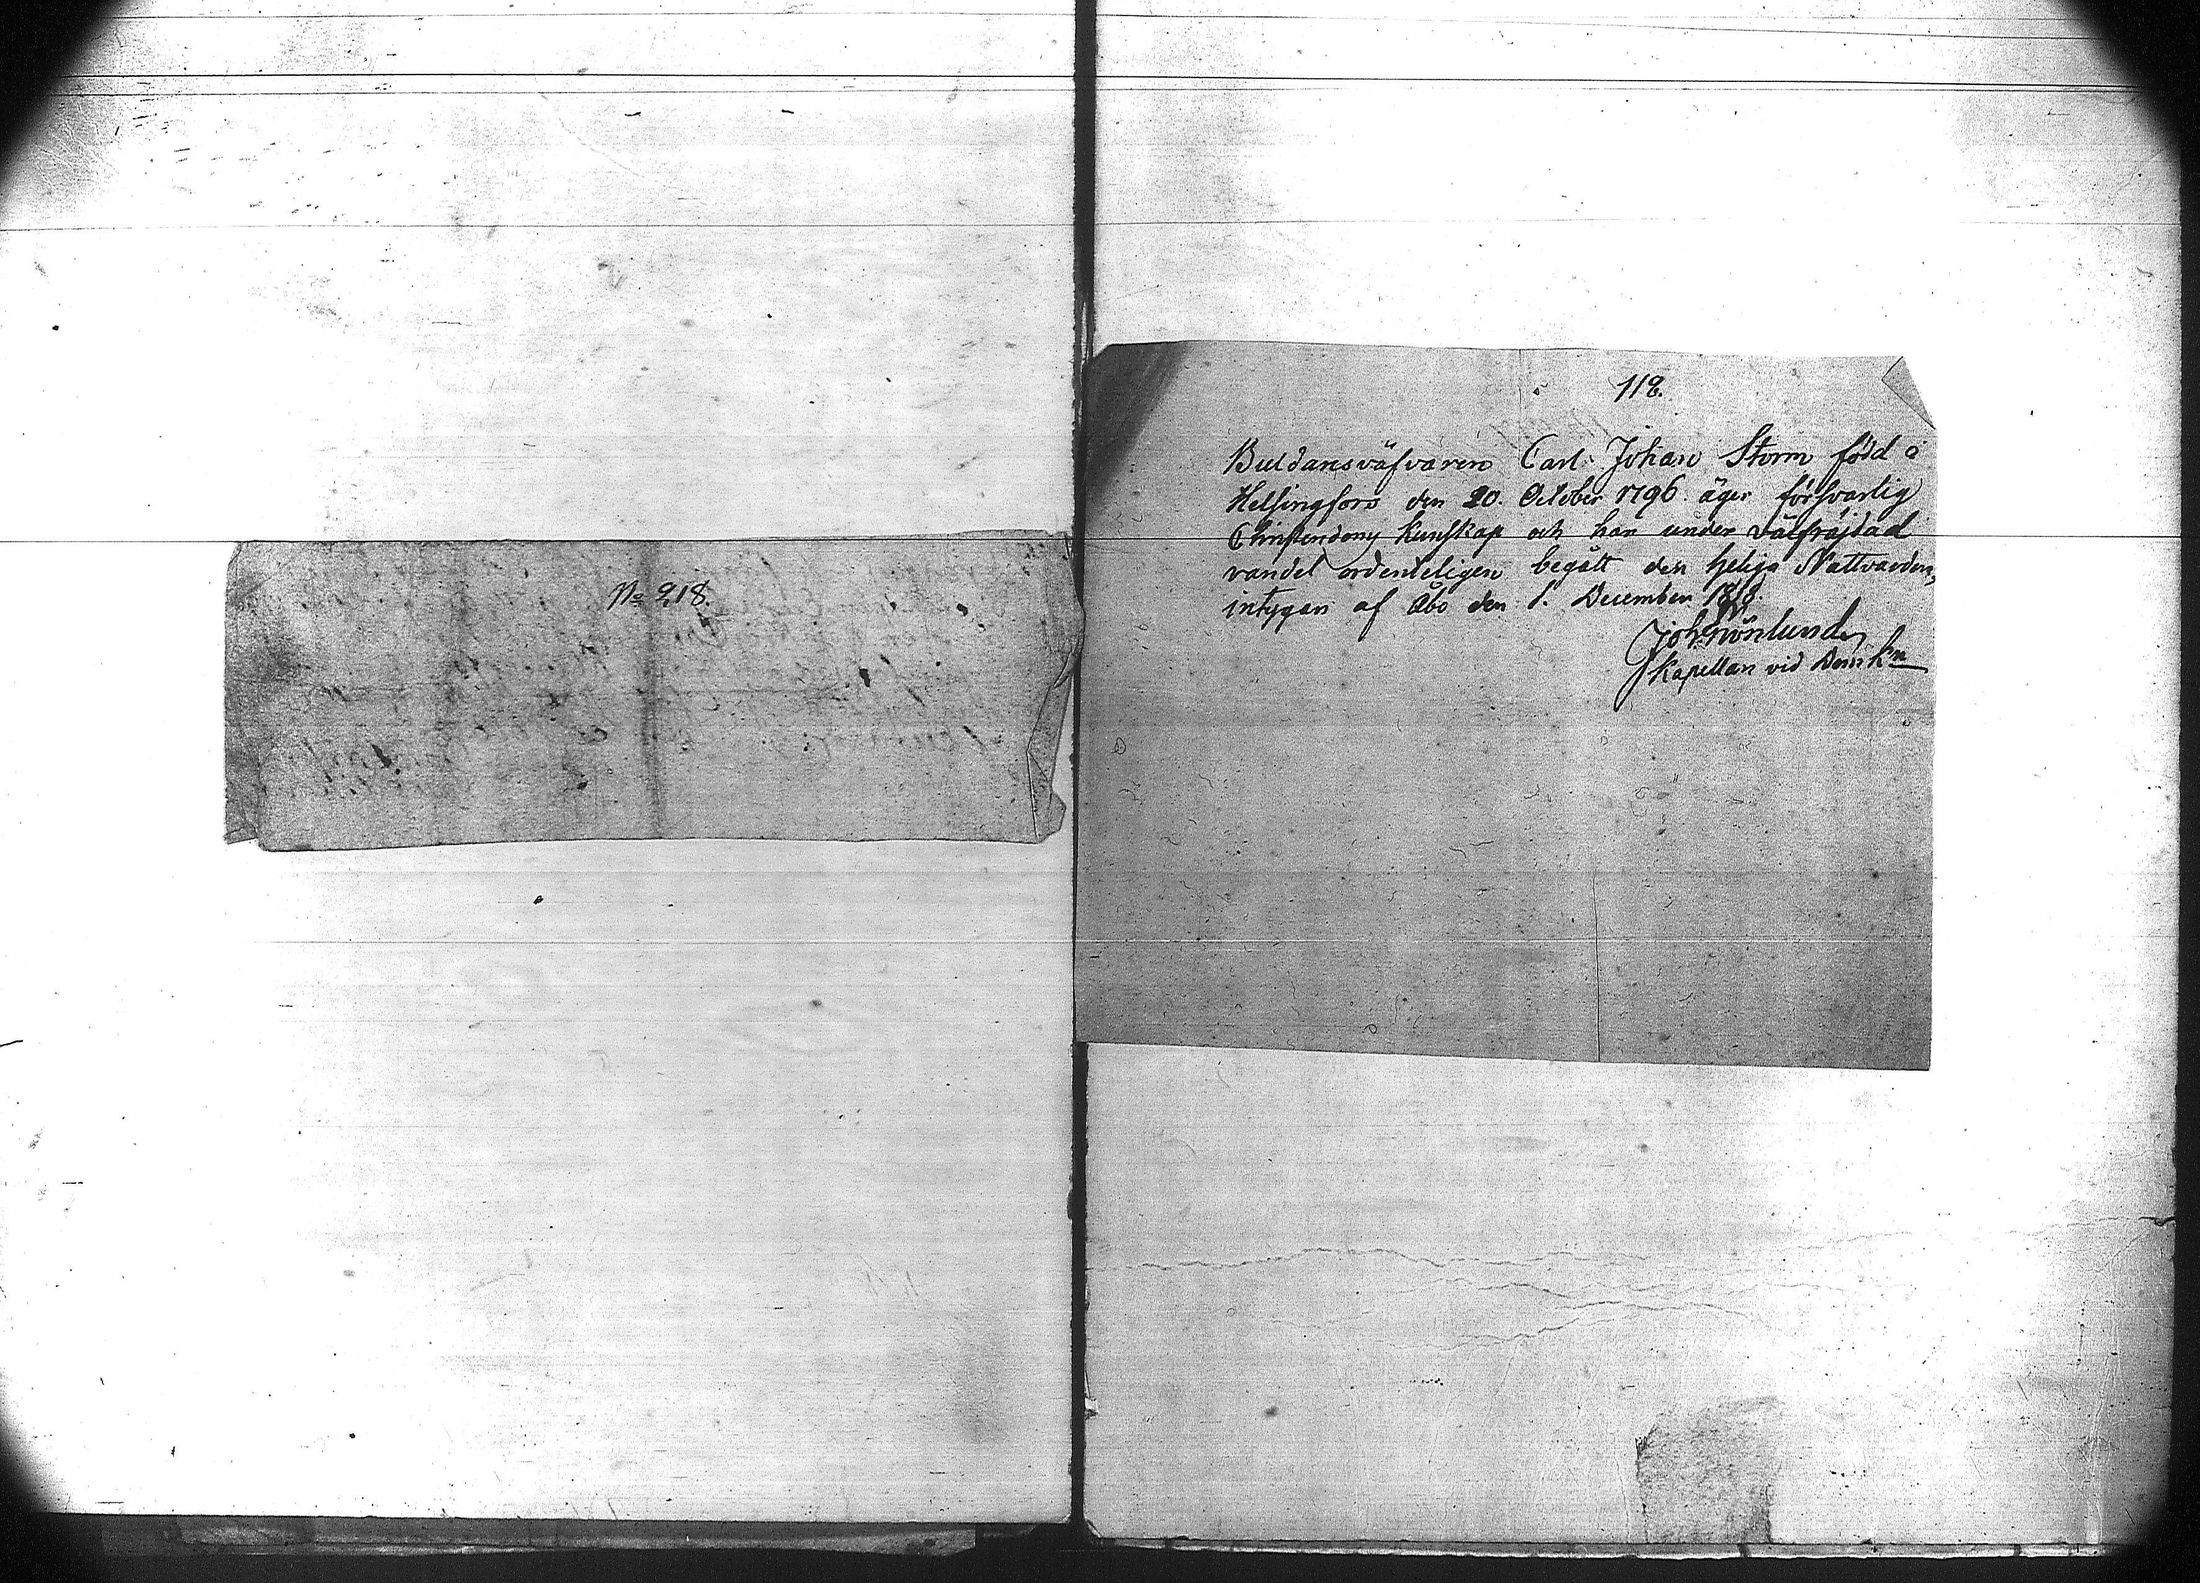 No 218.
118.
Buldansväfvaren Carl Johan Storm född i
Helsingfors den 20. October 1796. äger försvarlig
Christendoms kunskap och har under välfräjdad
vandel ordenteligen begått den heliga Nattvarden,
intygar af Åbo den 1. December 1818.
Joh Grönlund,
Kapellan vid Domk:n